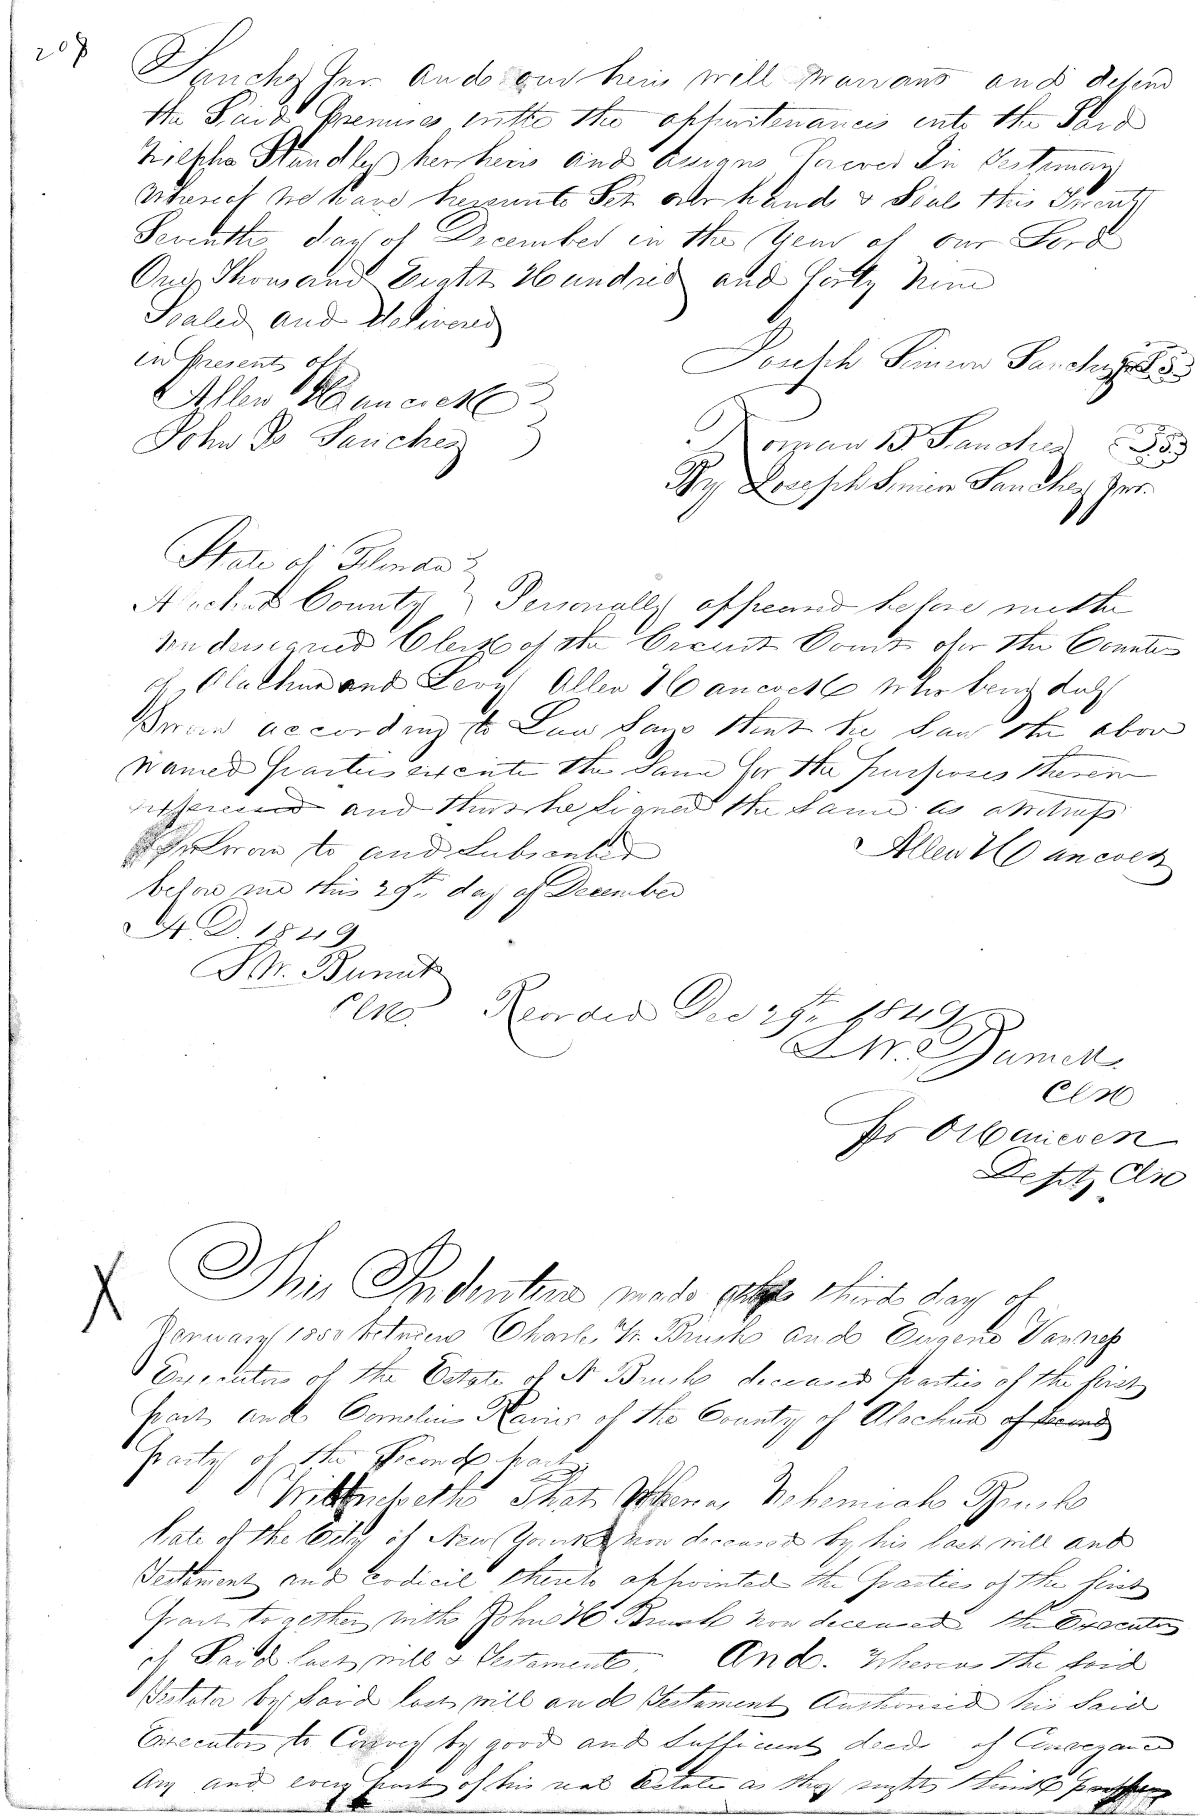 208
Sanchez Jnr. and our heirs will warrant and defend
the Said Premises with the appurtenances unto the Said
Zilpha Standley her heirs and assigns forever In Testimony
whereof We have hereunto Set our hand & Seals this Twenty
Seventh day of December in the Year of our Lord
One Thousand Eight Hundred and forty Nine
Sealed and delivered
in Presents off
Allen Hancock
John Sanchez
Joseph Simeon Sanchez Jnr LS
Roman B Sanchez LS
By Joseph Simeon Sanchez Jnr.
State of Florida
Alachua County Personally appeared before me the
undersigned Clerk of the Circuit Court for the Counties
of Alachua and Levy Allen Hancock who being duly
Sworn according to Law Says that he Saw the above
Named parties execute the Same for the purposes therein
expressed and that he Signed the Same as a witness
Sworn to and Subscribed
Allen Hancock
before me this 29th day of December
A.D. 1849
Clk.
Recorded Dec 29th 1849
Clk
Depty Clk
X
This Indenture made the third day of
January 1850 between Charles Brush and Eugene Vanness
Executors of the Estate of N Brush deceased parties of the first
part and Cornelius Rains of the County of Alachua of second
Party of the Second part
Witnesseth That Whereas Nehemiah Brush
late of the City of New York now deceased by his last will and
Testament and codicil thereto appointed the Parties of the first
part together with John H Brush now deceased the Executors
of Said last will & Testament. And. Whereas the said
Testator by Said last will and Testament Authorised his Said
Executors to Convey by good and Sufficient deed of Conveyance
Any and every part of his real Estate as they might think proper